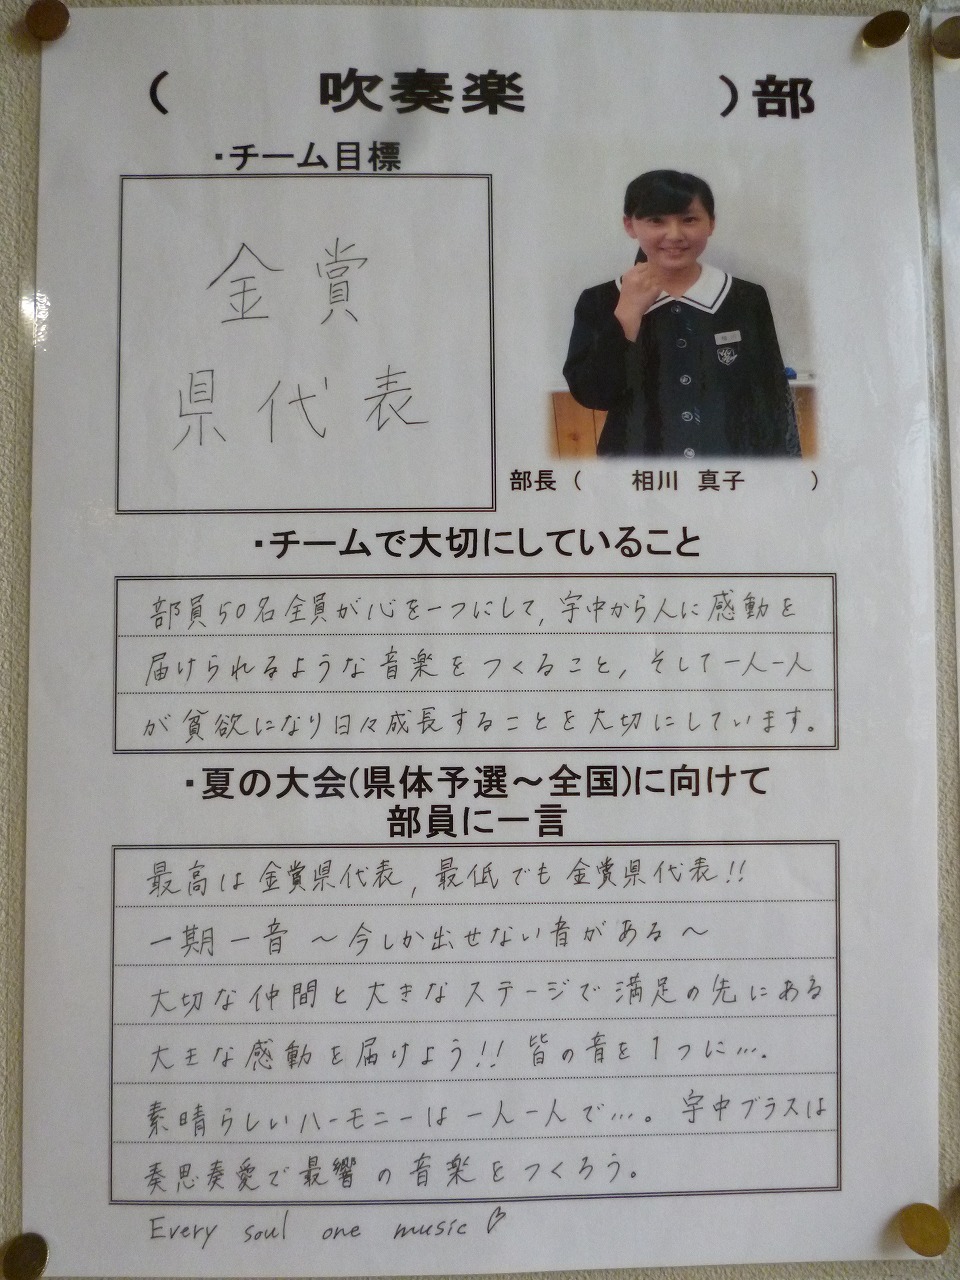 ( 吹奏楽 )部
・チーム目標
金賞
県代表
部長 ( 相川 真子 )
・チームで大切にしていること
部員50名全員が心を一つにして,宇中から人に感動を
届けられるような音楽をつくること,そして一人一人
が貧欲になり日々成長することを大切にしています。
・夏の大会(県体予選～全国)に向けて
部員に一言
最高は金賞県代表,最低でも金賞県代表!!
一期一音～今しか出せない音がある～
大切な仲間と大きなステージで満足の先にある
大王な感動を届けよう!!皆の音を1つに….
素晴らしいハーモニーは一人一人で…。宇中ブラスは
奏思奏愛で最響の音楽をつくろう。
Every soul one music♡